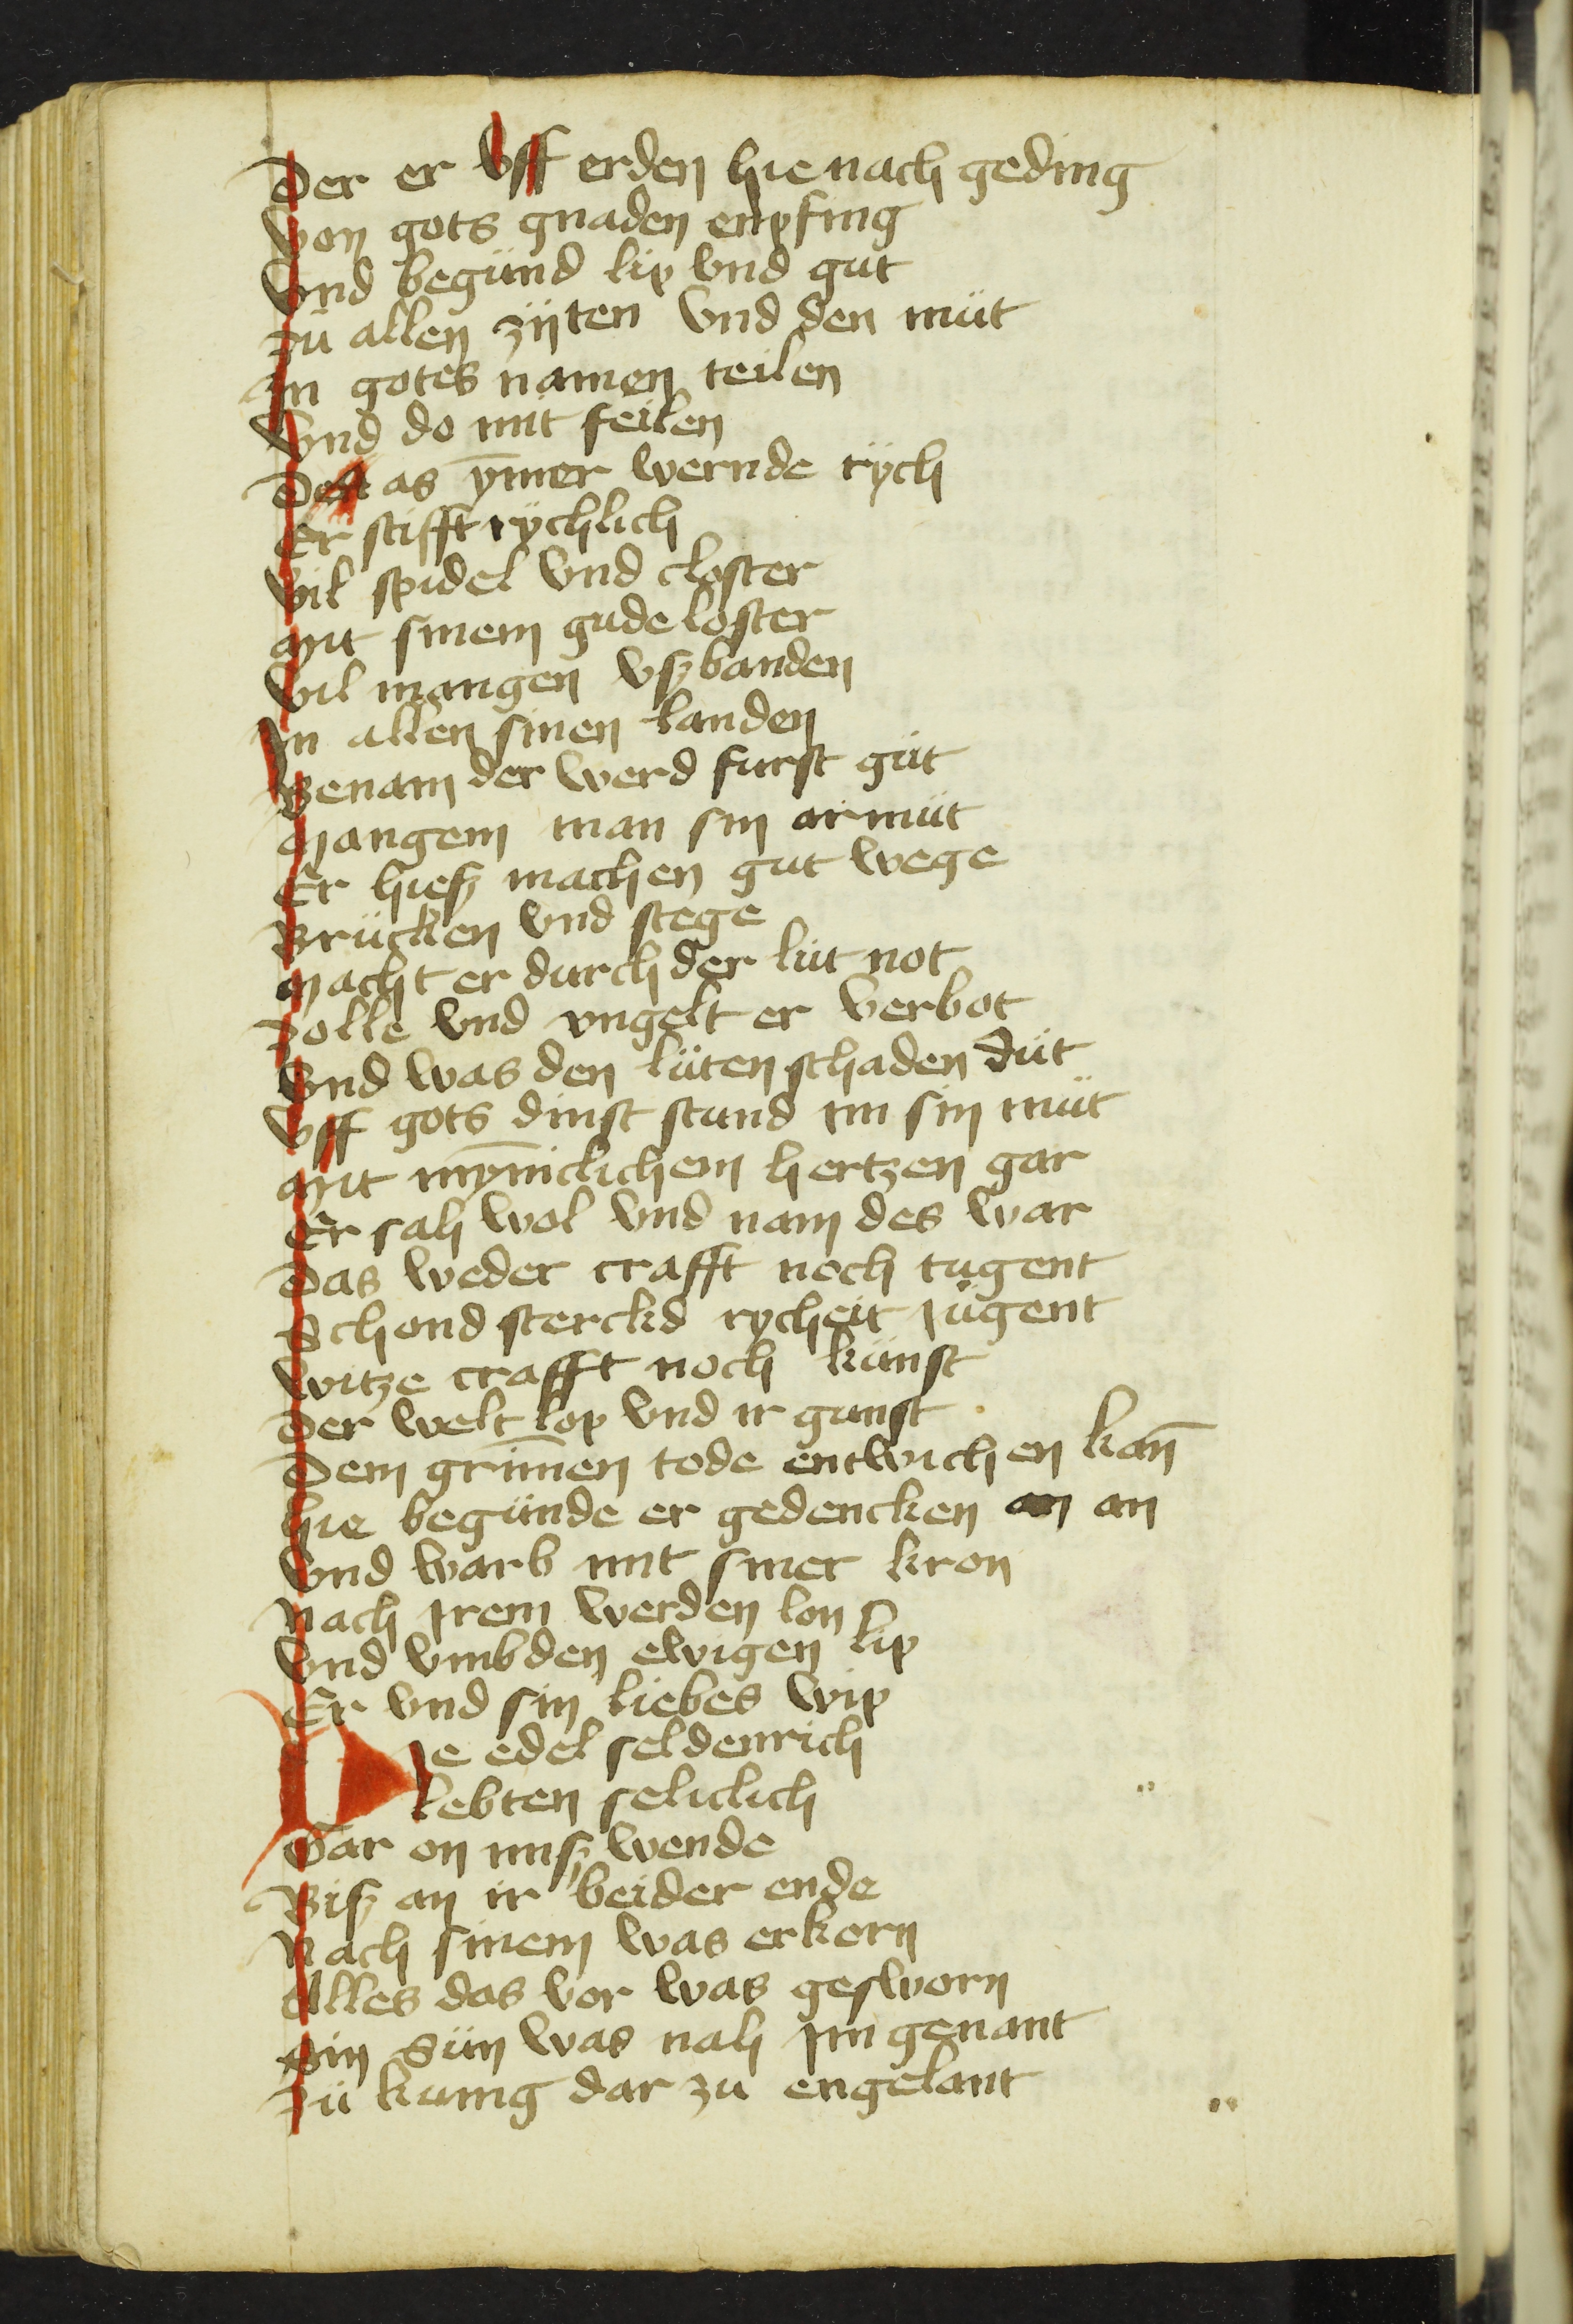 Der er vff erden hie nach geding
Von gots gnaden enpfing
Vnd begünd lip vnd gut
Zü allen zijten vnd den müt
In gotes namen teilen
Vnd do mit feilen
Das ym̄er wernde rÿch
Er stifft rÿchlich
Vil spidel vnd closter
Mit sinem gude loster
Vil mangen vß banden
In allen sinen landen
Benam der werd furst güt
Mangem man sin armüt
Er hieß machen gut wege
Brücken vnd stege
Macht er durch der lüt not
Zolle vnd vngelt er verbot
Vnd was den lüten schaden düt
Vff gots dinst stund im sin müt
Mit mȳniclichem hertzen gar
Er sah wol vnd nam des war
Das weder crafft noch tugent
Schond sterckd rycheit jügent
Witze crafft noch künst
Der welt lop vnd ir gunst
Dem grim̄en tode entwichen kan̄
Hie begünde er gedencken an
Vnd warb mit siner kron
Nach jrem werden lon
Vnd vmb den ewigen lip
Er vnd sin liebes wip
Die edel seldenrich
Lebten seliclich
Dar on miß wende
Biß an ir beider ende
Nach sinem was erkorn
Alles das vor was gesworn
Sin sün was nah jm genant
Zü kunig dar zu engelant